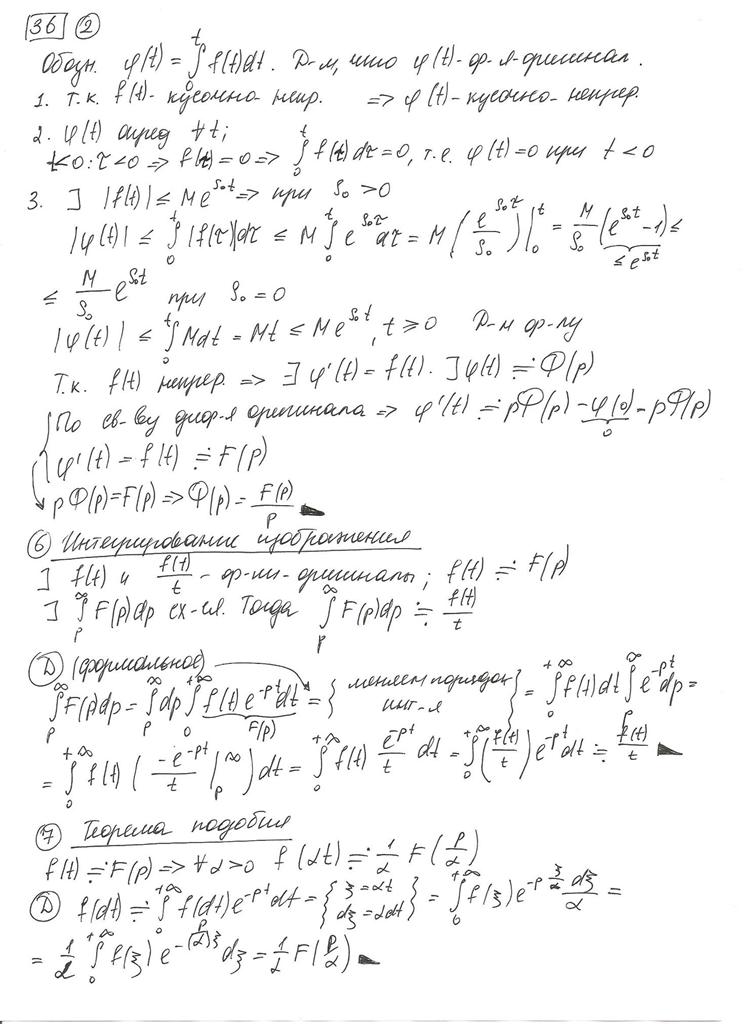 36 ②
Обозн. φ(t) = ∫₀ᵗ f(t)dt. Д-м, что φ(t)-ф-я-оригинал.
1. Т.к. f(t)- кусочно-непр. => φ(t)-кусочно-непрер.
2. φ(t) опред ∀t;
t<0: τ<0 => f(τ)=0 => ∫₀ᵗ f(τ)dτ=0, т.е. φ(t)=0 при t<0
3. ∃ |f(t)| ≤ Me^{s₀t} => при s₀>0
|φ(t)| ≤ ∫₀ᵗ |f(τ)|dτ ≤ M ∫₀ᵗ e^{s₀τ}dτ = M (e^{s₀τ}/s₀)|₀ᵗ = M/s₀ (e^{s₀t} -1) ≤
≤ e^{s₀t}
≤ M/s₀ e^{s₀t} при s₀=0
|φ(t)| ≤ ∫₀ᵗ Mdt = Mt ≤ Me^{s₀t}, t≥0 Д-м ф-лу
Т.к. f(t) непрер. => ∃ φ'(t) = f(t). ∃ φ(t) ≓ Φ(p)
По св-ву диф-я оригинала => φ'(t) ≓ pΦ(p) - φ(0) = pΦ(p)
0
φ'(t) = f(t) ≓ F(p)
pΦ(p)=F(p) => Φ(p) = F(p)/p
⑥ Интегрирование изображения
∃ f(t) и f(t)/t - ф-ии-оригиналы; f(t) ≓ F(p)
∃ ∫ₚ^∞ F(p)dp сх-ся. Тогда ∫ₚ^∞ F(p)dp ≓ f(t)/t
Ⓓ (формальное)
∫ₚ^∞ F(p)dp = ∫ₚ^∞ dp ∫₀^{+∞} f(t)e^{-pt}dt = { меняем порядок инт-я } = ∫₀^{+∞} f(t)dt ∫ₚ^∞ e^{-pt}dp =
F(p)
= ∫₀^{+∞} f(t) (-e^{-pt}/t |ₚ^∞) dt = ∫₀^{+∞} f(t) e^{-pt}/t dt = ∫₀^{+∞} (f(t)/t) e^{-pt}dt ≓ f(t)/t
⑦ Теорема подобия
f(t) ≓ F(p) => ∀α>0 f(αt) ≓ 1/α F(p/α)
Ⓓ f(αt) ≓ ∫₀^{+∞} f(αt)e^{-pt}dt = { ξ=αt dξ=αdt } = ∫₀^{+∞} f(ξ)e^{-p ξ/α} dξ/α =
= 1/α ∫₀^{+∞} f(ξ) e^{-(p/α)ξ} dξ = 1/α F(p/α)